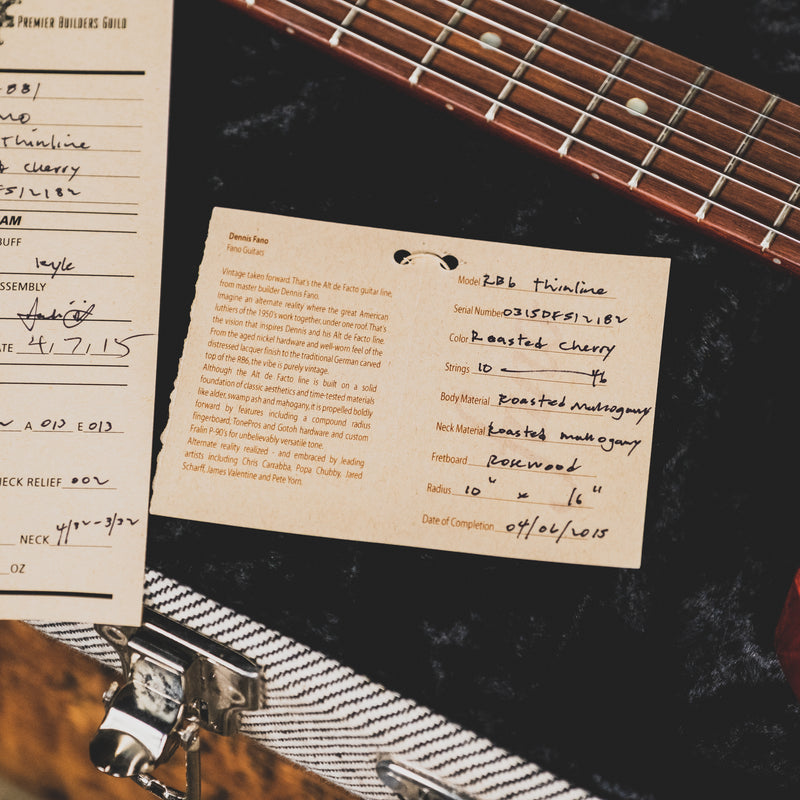 PREMIER BUILDERS GUILD
Thinline
Cherry
FS12182
AM
BUFF
Kyle
SSEMBLY
ATE 4/7/15
A 013 E 013
NECK RELIEF .002
NECK 4/32-3/32
OZ
Dennis Fano
Fano Guitars
Vintage taken forward. That's the Alt de Facto guitar line,
from master builder Dennis Fano.
Imagine an alternate reality where the great American
luthiers of the 1950's work together, under one roof. That's
the vision that inspires Dennis and his Alt de Facto line.
From the aged nickel hardware and well-worn feel of the
distressed lacquer finish to the traditional German carved
top of the RB6, the vibe is purely vintage.
Although the Alt de Facto line is built on a solid
foundation of classic aesthetics and time-tested materials
like alder, swamp ash and mahogany, it is propelled boldly
forward by features including a compound radius
fingerboard, TonePros and Gotoh hardware and custom
Fralin P-90's for unbelievably versatile tone.
Alternate reality realized - and embraced by leading
artists including Chris Carrabba, Popa Chubby, Jared
Scharff, James Valentine and Pete Yorn.
Model RB6 Thinline
Serial Number 0315DFS12182
Color Roasted Cherry
Strings 10 — 46
Body Material Roasted Mahogany
Neck Material Roasted mahogany
Fretboard Rosewood
Radius 10" x 16"
Date of Completion 04/06/2015